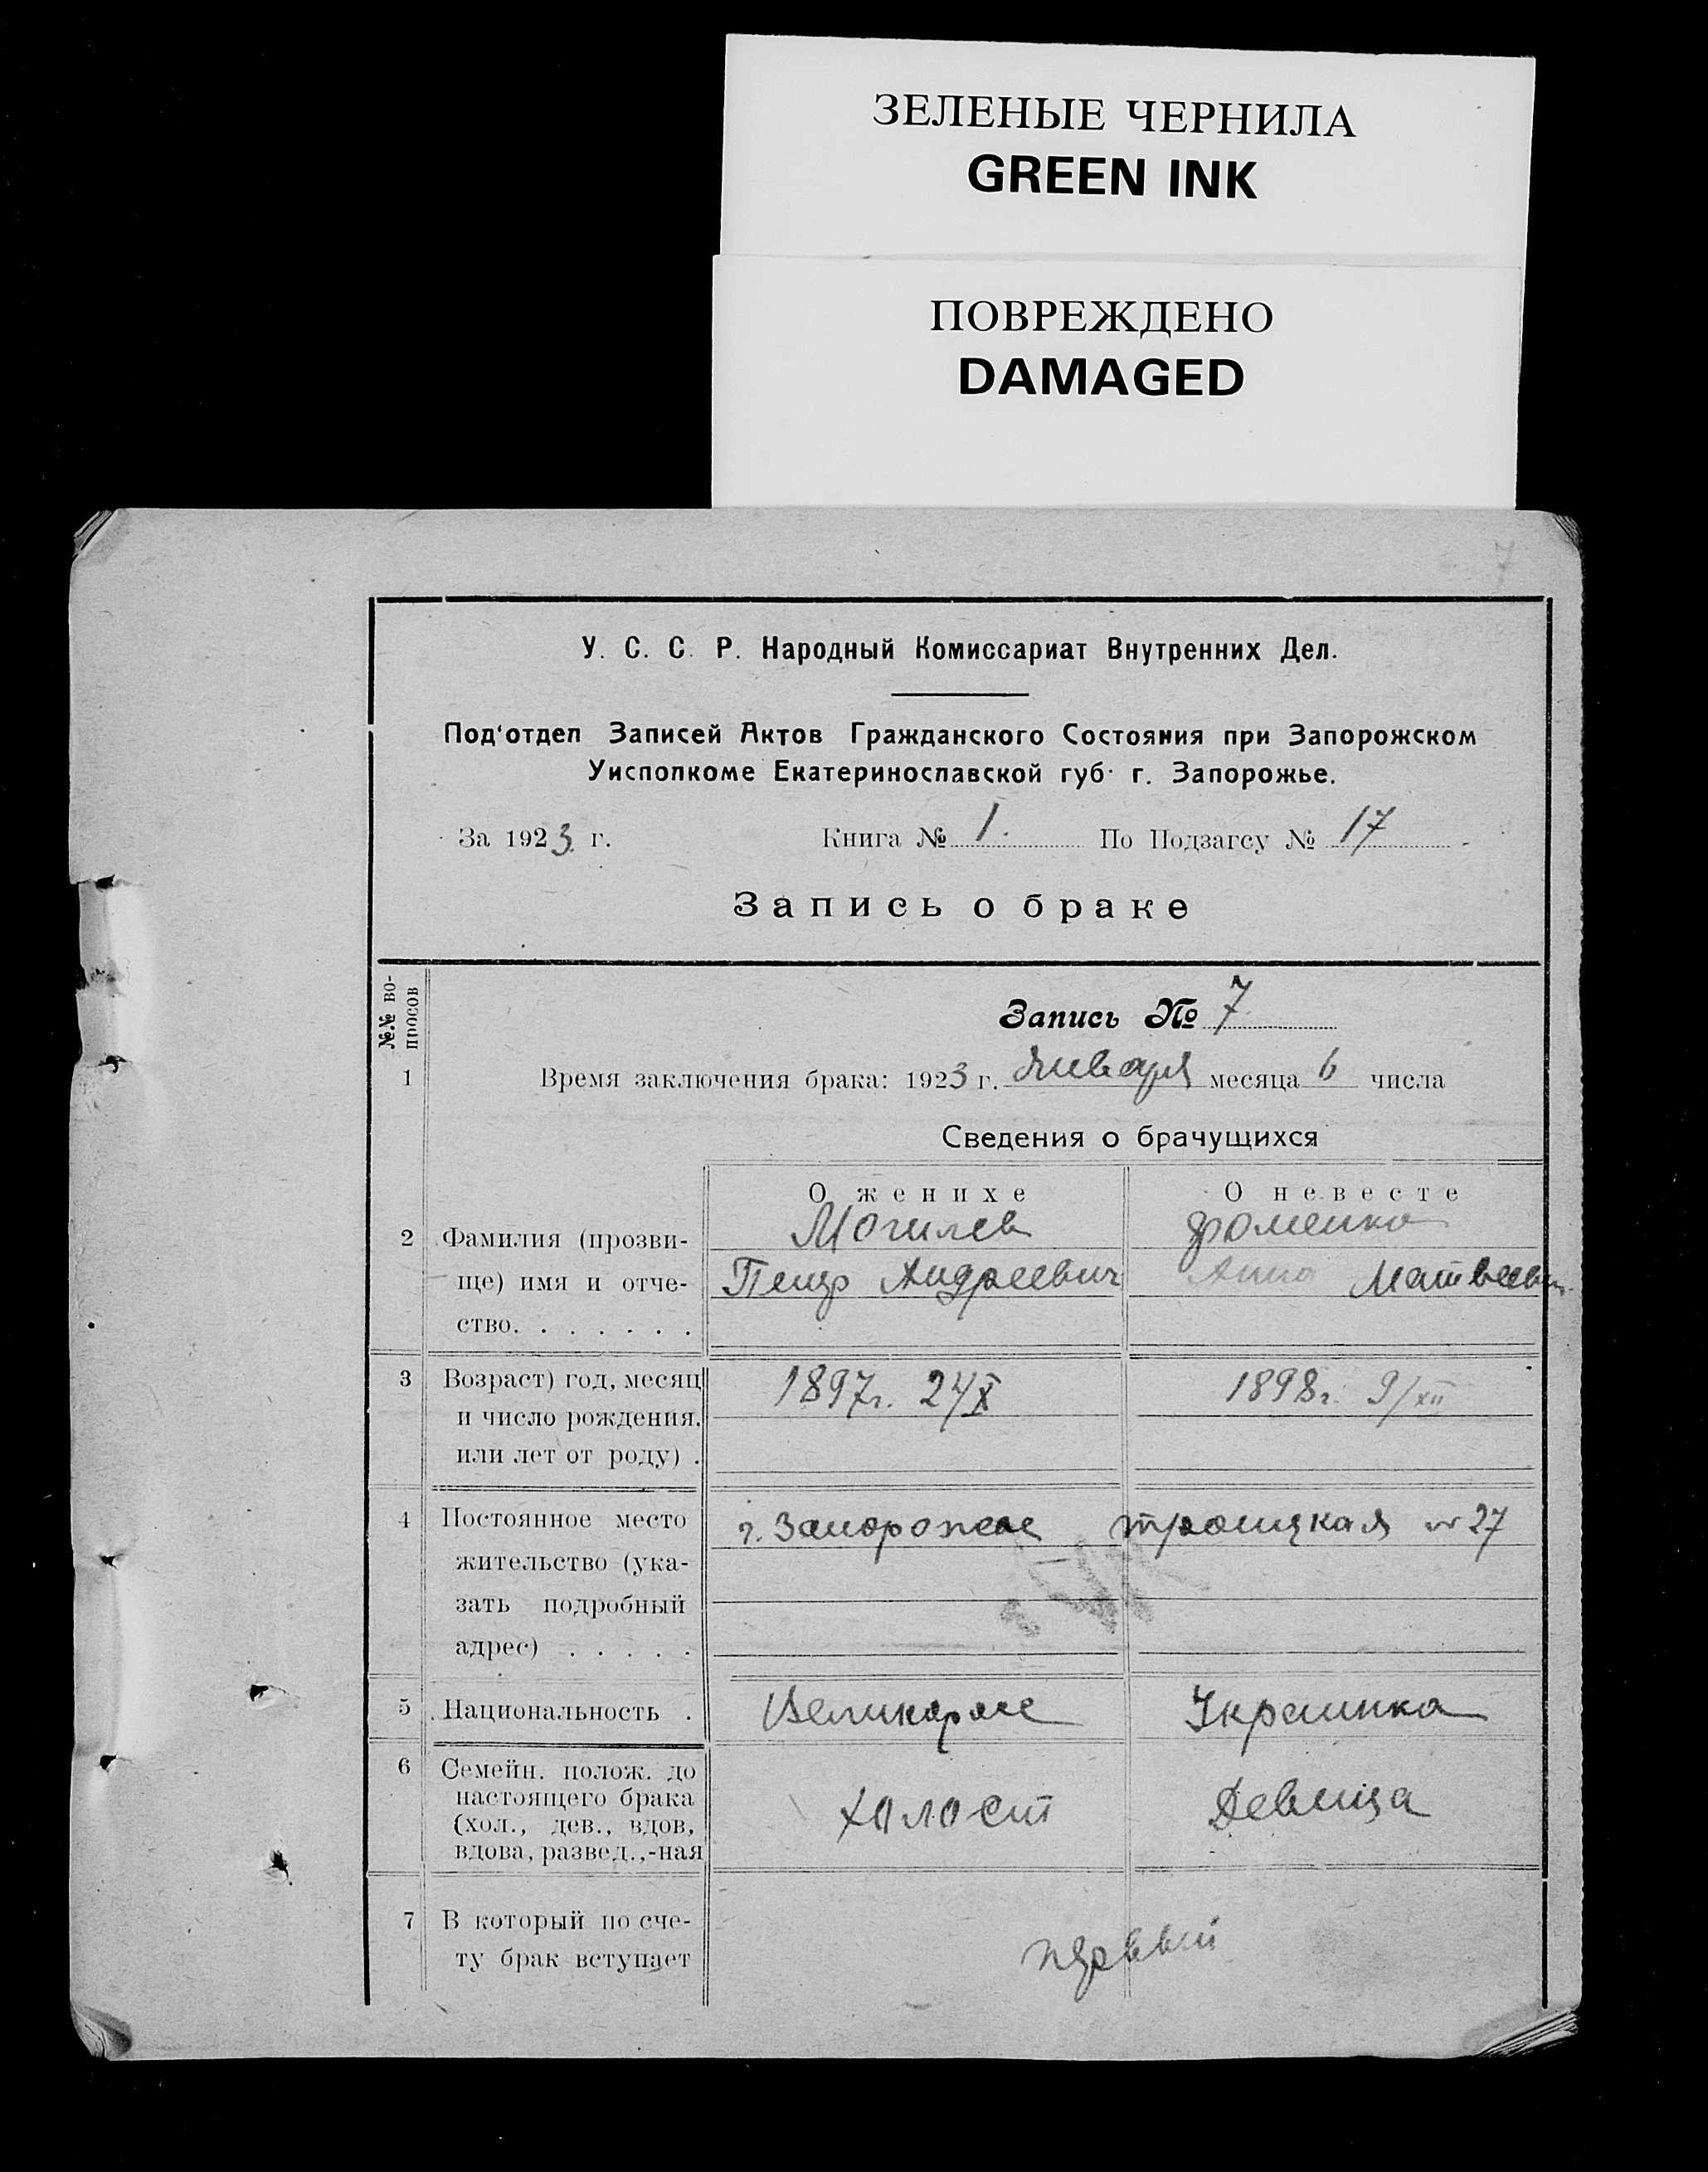 ЗЕЛЕНЫЕ ЧЕРНИЛА
GREEN INK
ПОВРЕЖДЕНО
DAMAGED
7
У. С. С. Р. Народный Комиссариат Внутренних Дел.
Под'отдел Записей Актов Гражданского Состояния при Запорожском
Уисполкоме Екатеринославской губ. г. Запорожье.
За 1923 г. Книга № 1. По Подзагсу № 17
Запись о браке
№№ во-
просов
Запись № 7
1 Время заключения брака: 1923 г. Января месяца 6 числа
Сведения о брачущихся
О женихе О невесте
2 Фамилия (прозви- Могилев Фоменко
ще) имя и отче- Петр Андреевич Анна Матвеевн
ство. . . . . . .
3 Возраст) год, месяц 1897г. 24/X 1898г. 9/XII
и число рождения,
или лет от роду) .
4 Постоянное место г. Запорожье Троицкая № 27
жительство (ука-
зать подробный
адрес) . . . . .
5 Национальность . Великорос Украинка
6 Семейн. полож. до
настоящего брака Холост Девица
(хол., дев., вдов,
вдова, развед.,-ная
7 В который по сче- первый
ту брак вступает